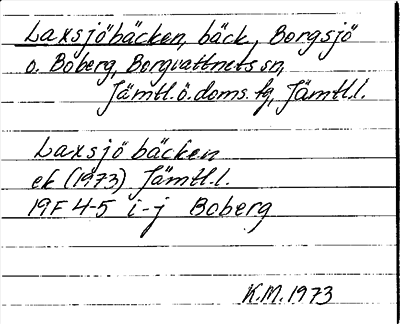 Laxsjöbäcken, bäck, Borgsjö
o. Boberg, Borgvattnets sn,
Jämtl.ö.doms.fg, Jämtl.l.
Laxsjöbäcken
ek (1973) Jämtl.l.
19F 4-5 i-j Boberg
K.M. 1973